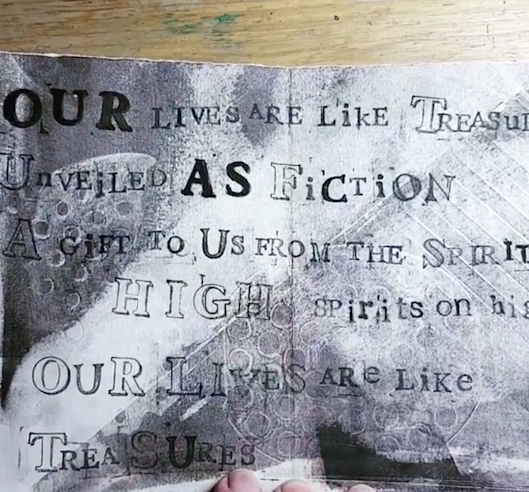 OUR LIVES ARE LikE TREASU
UnVEiLED AS FiCTiON
A GiFT TO US FROM THE SPIRIT
HIGH spirits on hi
OUR LIVES ARe LiKe
TREASURES